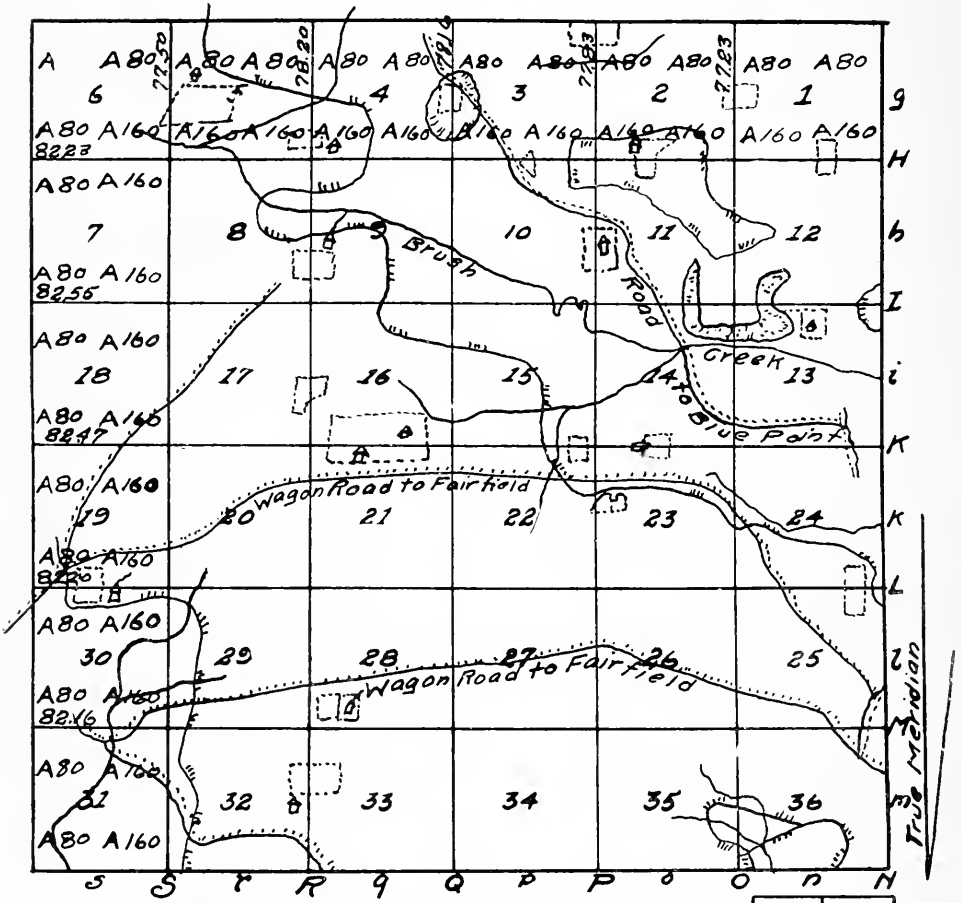 77.50 78.20 78.16 77.83 77.23
A A80 A80 A80 A80 A80 A80 A80 A80 A80 A80
6 4 3 2 1 g
A80 A160 A160 A160 A160 A160 A160 A160 A160 A160 A160
82.23 H
A80 A160
7 8 9 10 11 12 h
Brush
A80 A160
82.55 I
Road
A80 A160 Creek
18 17 16 15 14 13 i
to Blue Point
A80 A160
82.47 K
A80 A160 Wagon Road to Fairfield
19 20 21 22 23 24 K
A80 A160
82.20 L
A80 A160
30 29 28 27 26 25 l
Wagon Road to Fairfield
A80 A160
82.16 M
A80 A160
31 32 33 34 35 36 m
A80 A160
s S r R q Q p P o O n N
True Meridian